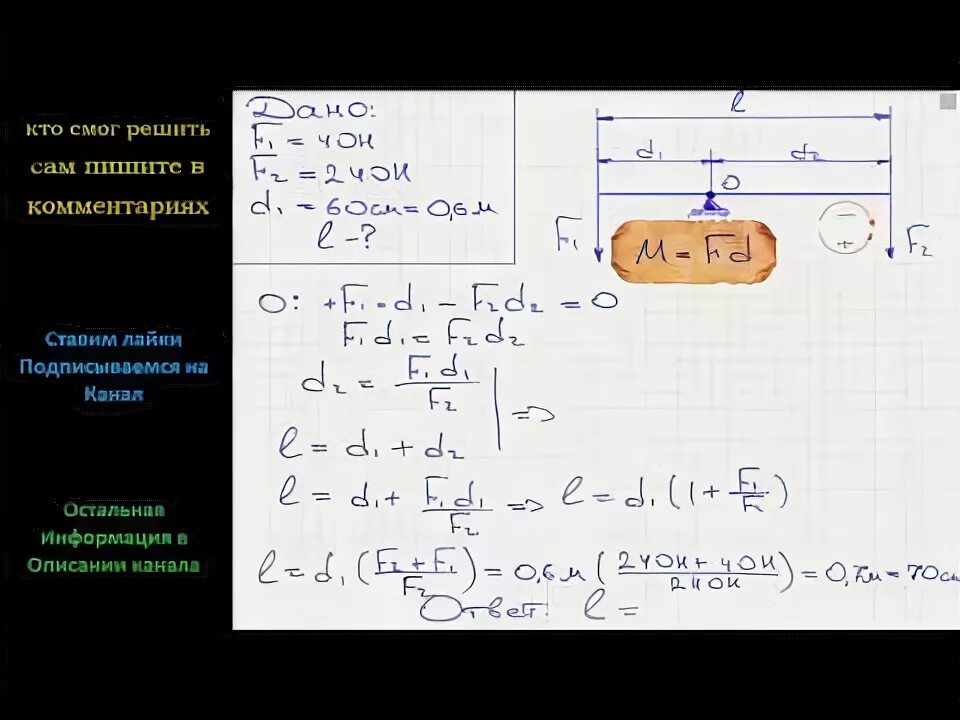 кто смог решить
сам пишите в
комментариях
Ставим лайки
Подписываемся на
Канал
Остальная
Информация в
Описании канала
Дано:
F₁ = 40Н
F₂ = 240Н
d₁ = 60см = 0,6м
l - ?
l
d₁ d₂
O
F₁ F₂
M = Fd
−
+
O: +F₁·d₁ − F₂d₂ = 0
F₁d₁ = F₂d₂
d₂ = F₁d₁/F₂
=>
l = d₁ + d₂
l = d₁ + F₁d₁/F₂ => l = d₁(1 + F₁/F₂)
l = d₁(F₂+F₁/F₂) = 0,6м(240Н+40Н/240Н) = 0,7м = 70см
Ответ: l =